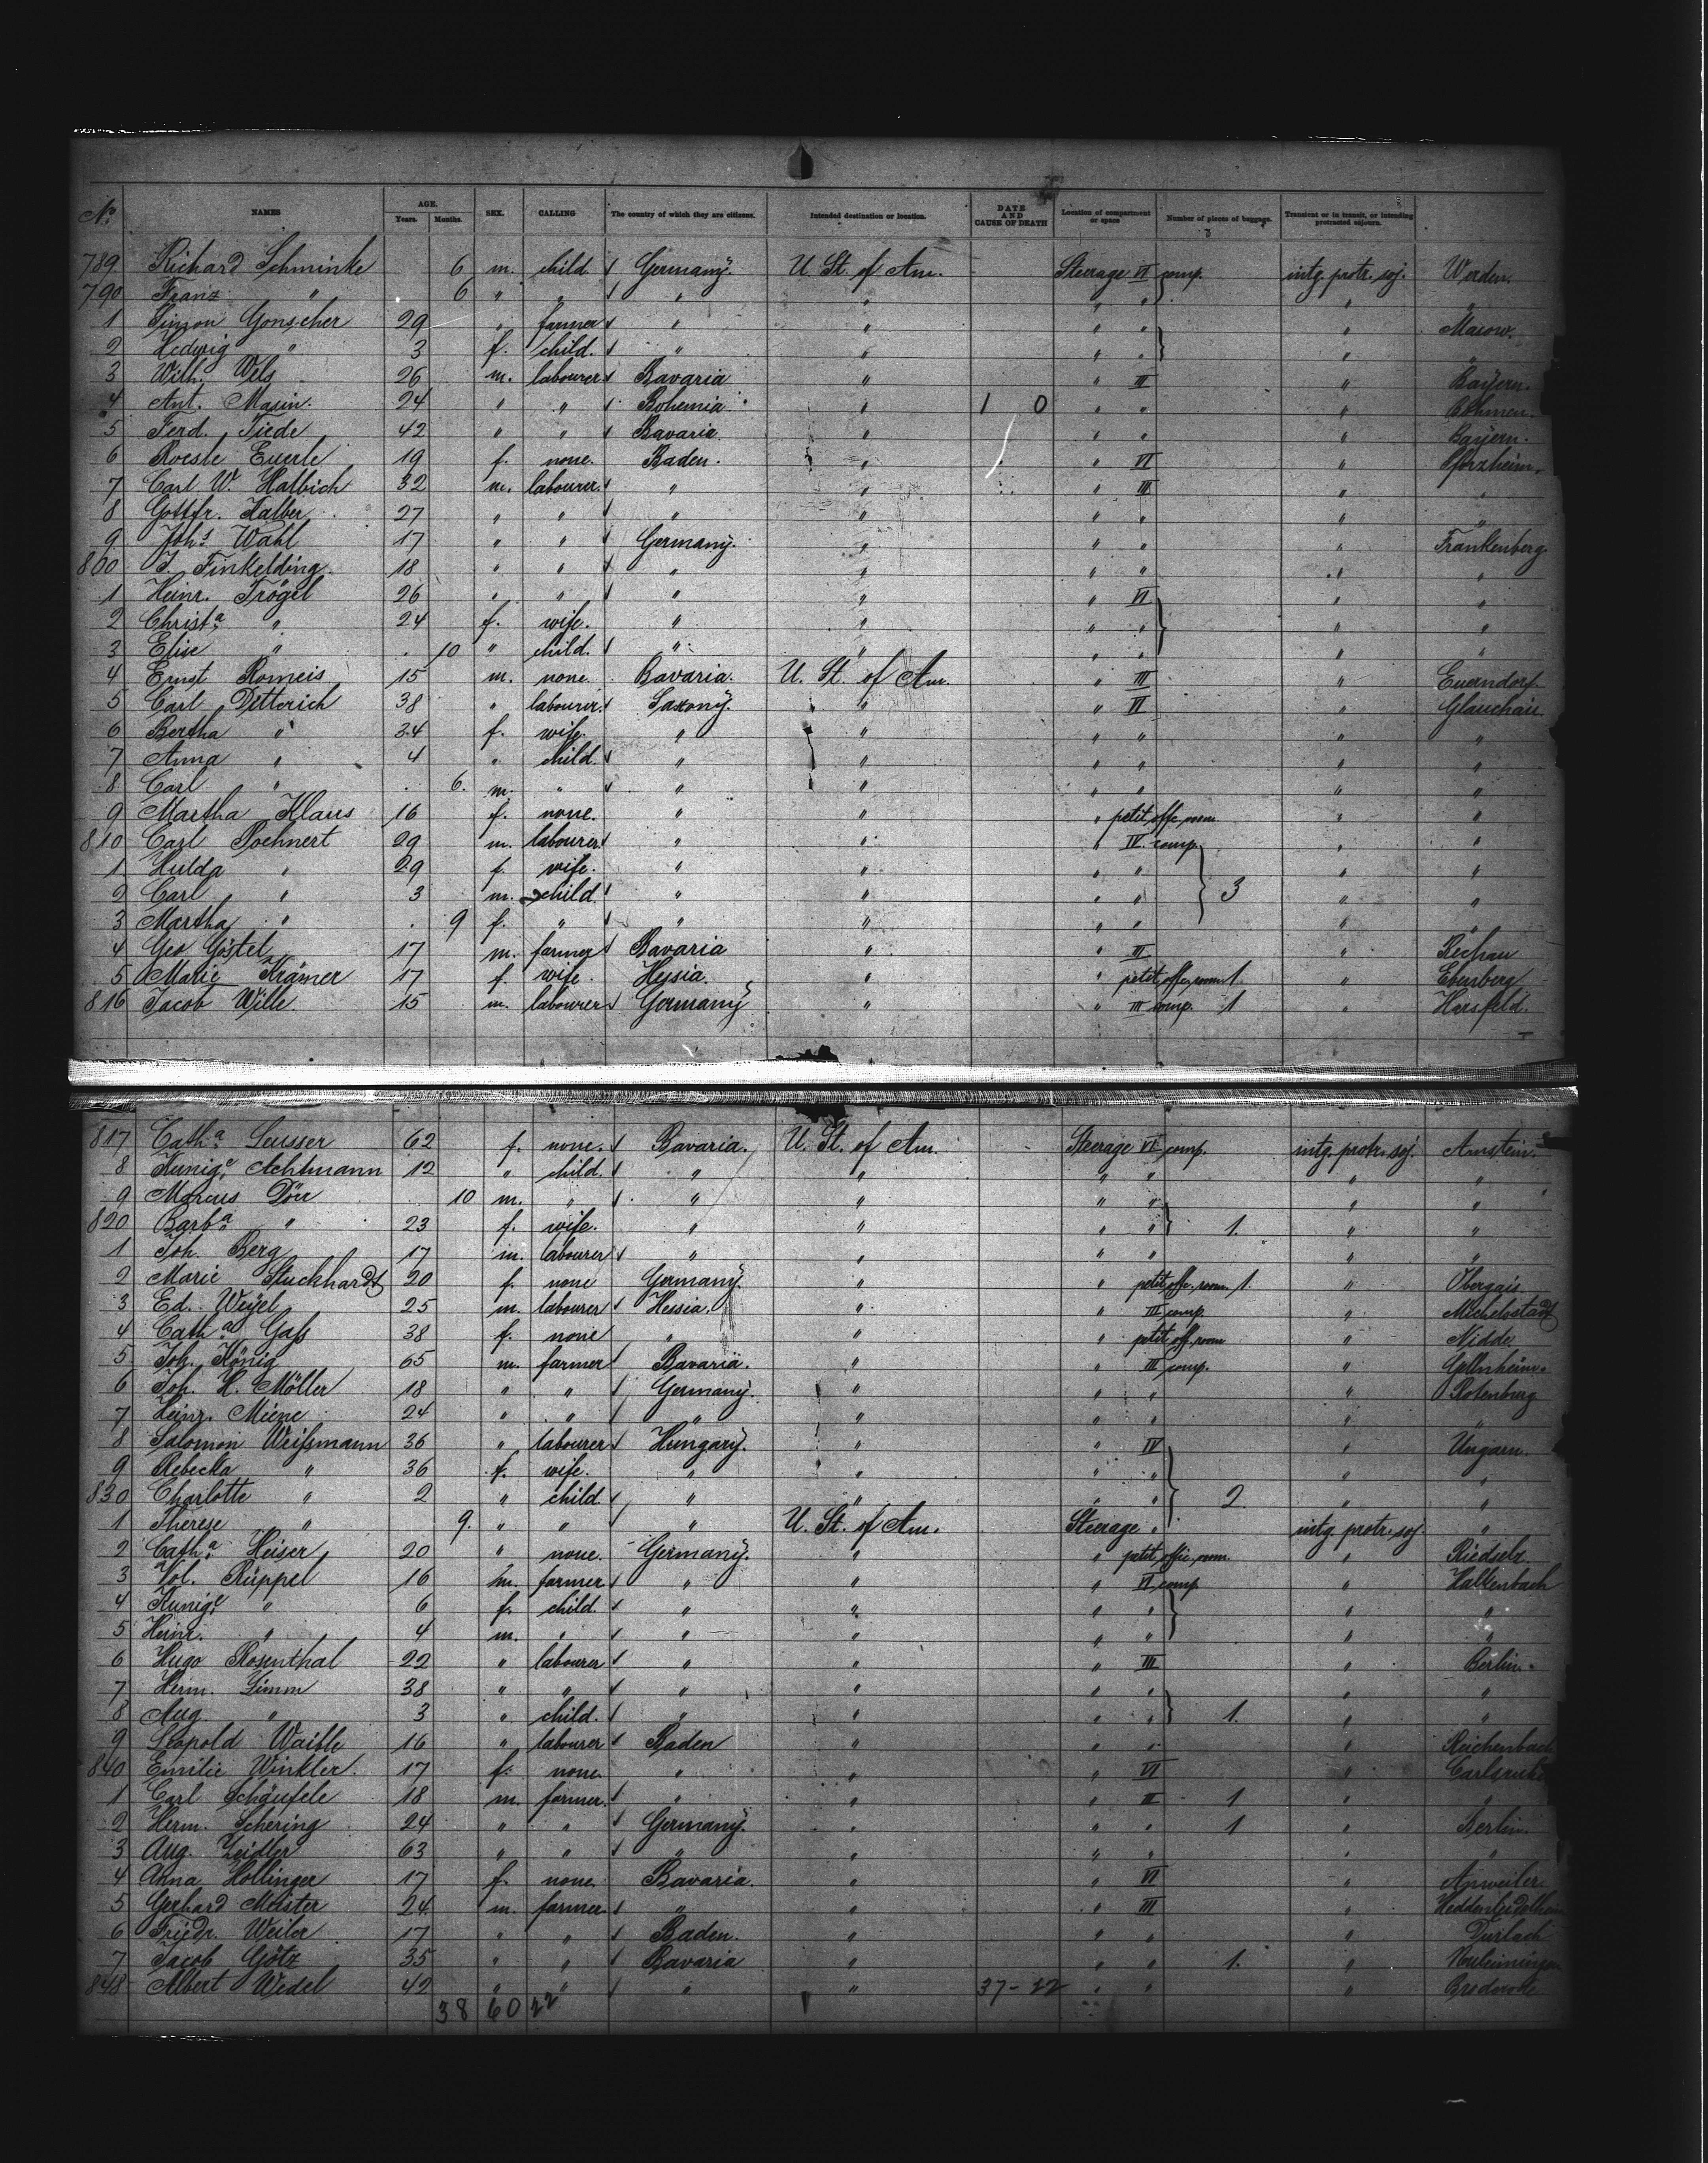 No. NAMES AGE. Years. Months. SEX. CALLING The country of which they are citizens. Intended destination or location. DATE AND CAUSE OF DEATH Location of compartment or space Number of pieces of baggage. Transient or in transit, or intending protracted sojourn.
789 Richard Schminke 6 m. child Germany. U. St. of Am. Steerage VI comp. intg. protr. soj. Werden.
790 Franz " 6 " " " " " " " "
1 Simon Gonscher 29 " farmer " " " " " Masow.
2 Hedwig " 3 f. child. " " " " " "
3 Wilh. Wels 26 m. labourer Bavaria " " III " Bayern.
4 Ant. Masin. 24 " " Bohemia " 1 0 " " " Böhmen.
5 Ferd. Tiede 42 " " Bavaria. " " " " Bayern.
6 Roesle Euerle 19 f. none. Baden. " " VI " Pforzheim.
7 Carl W. Halbich 32 m. labourer. " " " III " "
8 Gottfr. Kalber 27 " " " " " " " "
9 Johs. Wahl 17 " " Germany. " " " " Frankenberg.
800 J. Finkelding 18 " " " " " " " "
1 Heinr. Trögel 26 " " " " " VI " "
2 Christa. " 24 f. wife. " " " " " "
3 Elise " 10 " child. " " " " " "
4 Ernst Romeis 15 m. none. Bavaria. U. St. of Am. " III " Euerndorf
5 Carl Ditterich 38 " labourer. Saxony. " " VI " Glauchau.
6 Bertha " 34 f. wife. " " " " " "
7 Anna " 4 " child. " " " " " "
8 Carl " 6. m. " " " " " " "
9 Martha Klaus 16 f. none. " " " petit. offc. room " "
810 Carl Pochnert 29 m. labourer " " " IV. comp. " "
1 Hulda " 29 f. wife. " " " " " "
2 Carl " 3 m. child " " " " 3 " "
3 Martha " 9 f. " " " " " " "
4 Geo. Göstel 17 m. farmer Bavaria " " III " Rechau
5 Marie Krämer 17 f. wife. Hessia. " " petit. offc. room 1. " Ebenberg
816 Jacob Wille. 15 m. labourer Germany " " III comp. 1 " Hersfeld.
817 Catha. Seusser 62 f. none. Bavaria. U. St. of Am. Steerage VI comp. intg. protr. soj. Arnstein.
8 Kunige. Achtmann 12 " child. " " " " " "
9 Marcus Dörr 10 m. " " " " " " "
820 Barba. " 23 f. wife. " " " " 1. " "
1 Joh. Berg 17 m. labourer " " " " " "
2 Marie Stuckhardt 20 f. none Germany. " " petit. offc. room 1. " Obergais
3 Ed. Weyel 25 m. labourer Hessia. " " III comp. " Michelstadt
4 Catha. Gaß 38 f. none " " " petit. off. room " Nidda
5 Joh. König 65 m. farmer Bavaria. " " III comp. "
6 Joh. H. Möller 18 " " Germany. " " " " Rotenburg
7 Heinr. Miene 24 " " " " " " " "
8 Salomon Weißmann 36 " labourer Hungary. " " IV " Ungarn.
9 Rebecka " 36 f. wife. " " " " " "
830 Charlotte " 2 " child. " " " " 2. " "
1 Therese " 9. " " " U. St. of Am. Steerage " intg. protr. soj. "
2 Catha. Heiser 20 " none. Germany. " " petit. offic. room. " Riedselz
3 Vol. Rüppel 16 m. farmer " " " VI comp " Halkenbach
4 Kunige. " 6 f. child. " " " " " "
5 Heinr. " 4 m. " " " " " " "
6 Hugo Rosenthal 22 " labourer " " " III " Berlin.
7 Herm. Timm 38 " " " " " " " "
8 Aug. " 3 " child. " " " " 1. " "
9 Leopold Waible 16 " labourer Baden " " " " Reichenbach
840 Emilie Winkler. 17 f. none " " " VI " Carlsruhe
1 Carl Schäufele 18 m. farmer. " " " III 1 " "
2 Herm. Schering 24 " " Germany. " " " 1 " Berlin.
3 Aug. Zeidler 63 " " " " " " " "
4 Anna Hollinger 17 f. none Bavaria. " " VI " Anweiler
5 Gerhard Meister 24 m. farmer " " " III "
6 Friedr. Weiler 17 " " Baden. " " " " Durlach
7 Jacob Götz 35 " " Bavaria " " " 1. "
848 Albert Wedel 42 " " " " 37-22 " " "
38 60 22